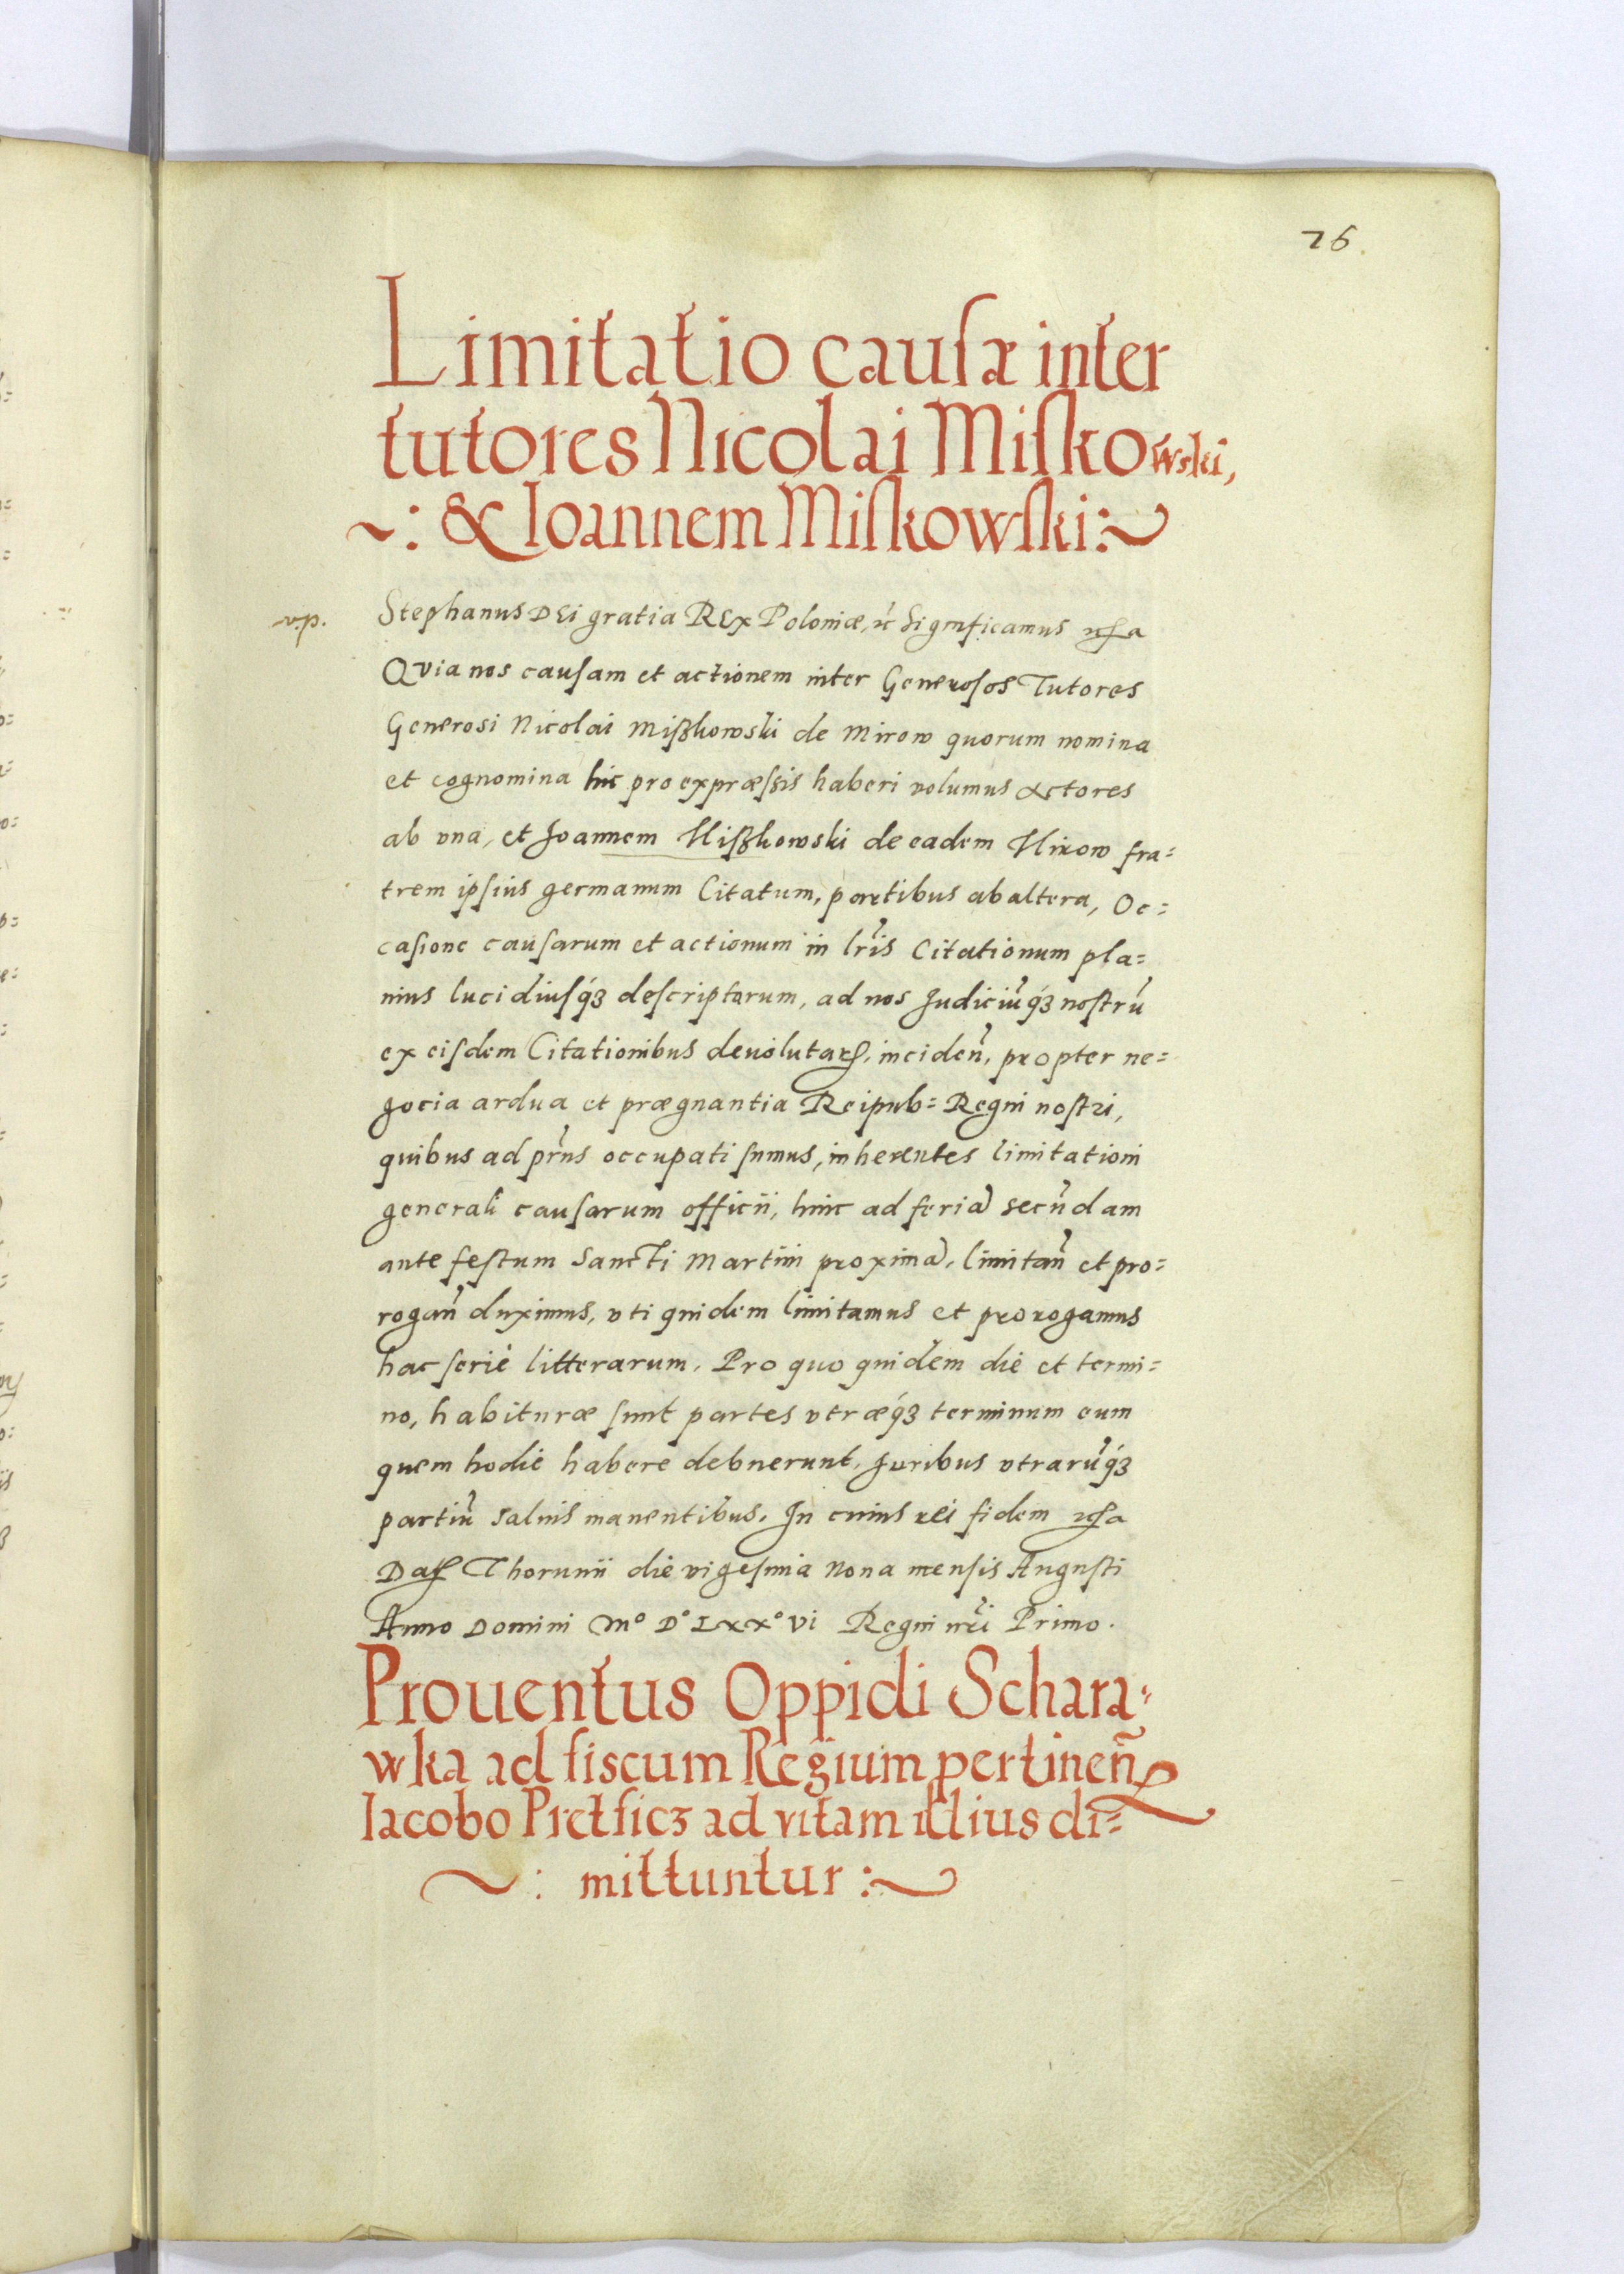 76.
Limitatio causæ inter
tutores Nicolai Miskowski,
~: & Ioannem Miskowski:~
v.p.
Stephanus DEi gratia REx Poloniæ, &c Significamus &c a
Qvia nos causam et actionem inter Generosos Tutores
Generosi Nicolai Mißkowski de Mirow quorum nomina
et cognomina hic pro expræssis haberi volumus Actores
ab vna, et Joannem Mißkowski de eadem Mirow fra=
trem ipsius germanum Citatum, partibus ab altera, Oc=
casione causarum et actionum in lr̃is Citationum pla=
nius lucidiusq́ꝫ descriptarum, ad nos Judiciũq́ꝫ nostrũ
ex eisdem Citationibus deuolutaꝝ, inciden̄, propter ne=
gocia ardua et prægnantia Reipub= Regni nostri,
quibus ad pr̃ns occupati sumus, inherentes limitationi
generali causarum officii, hinc ad feriã secũdam
ante festum Sancti Martini proximã, limitan̄ et pro=
rogan̄ duximus, vti quidem limitamus et prorogamus
hac serie litterarum. Pro quo quidem die et termi=
no, habituræ sunt partes vtræq́ꝫ terminum eum
quem hodie habere debuerunt, Juribus vtrarũq́ꝫ
partiũ saluis manentibus. In cuius rei fidem &c a
Datꝭ Thorunii die vigesima nona mensis Augusti
Anno Domini Mº Dº LXXº Vi Regni nr̃i Primo.
Prouentus Oppidi Schara=
wka ad fiscum Regium pertinen̄
Iacobo Pretficz ad vitam illius di=
~: mittuntur :~